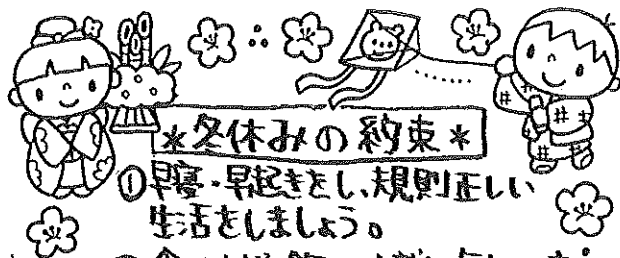 *冬休みの約束*
①早寝・早起きをし、規則正しい
生活をしましょう。